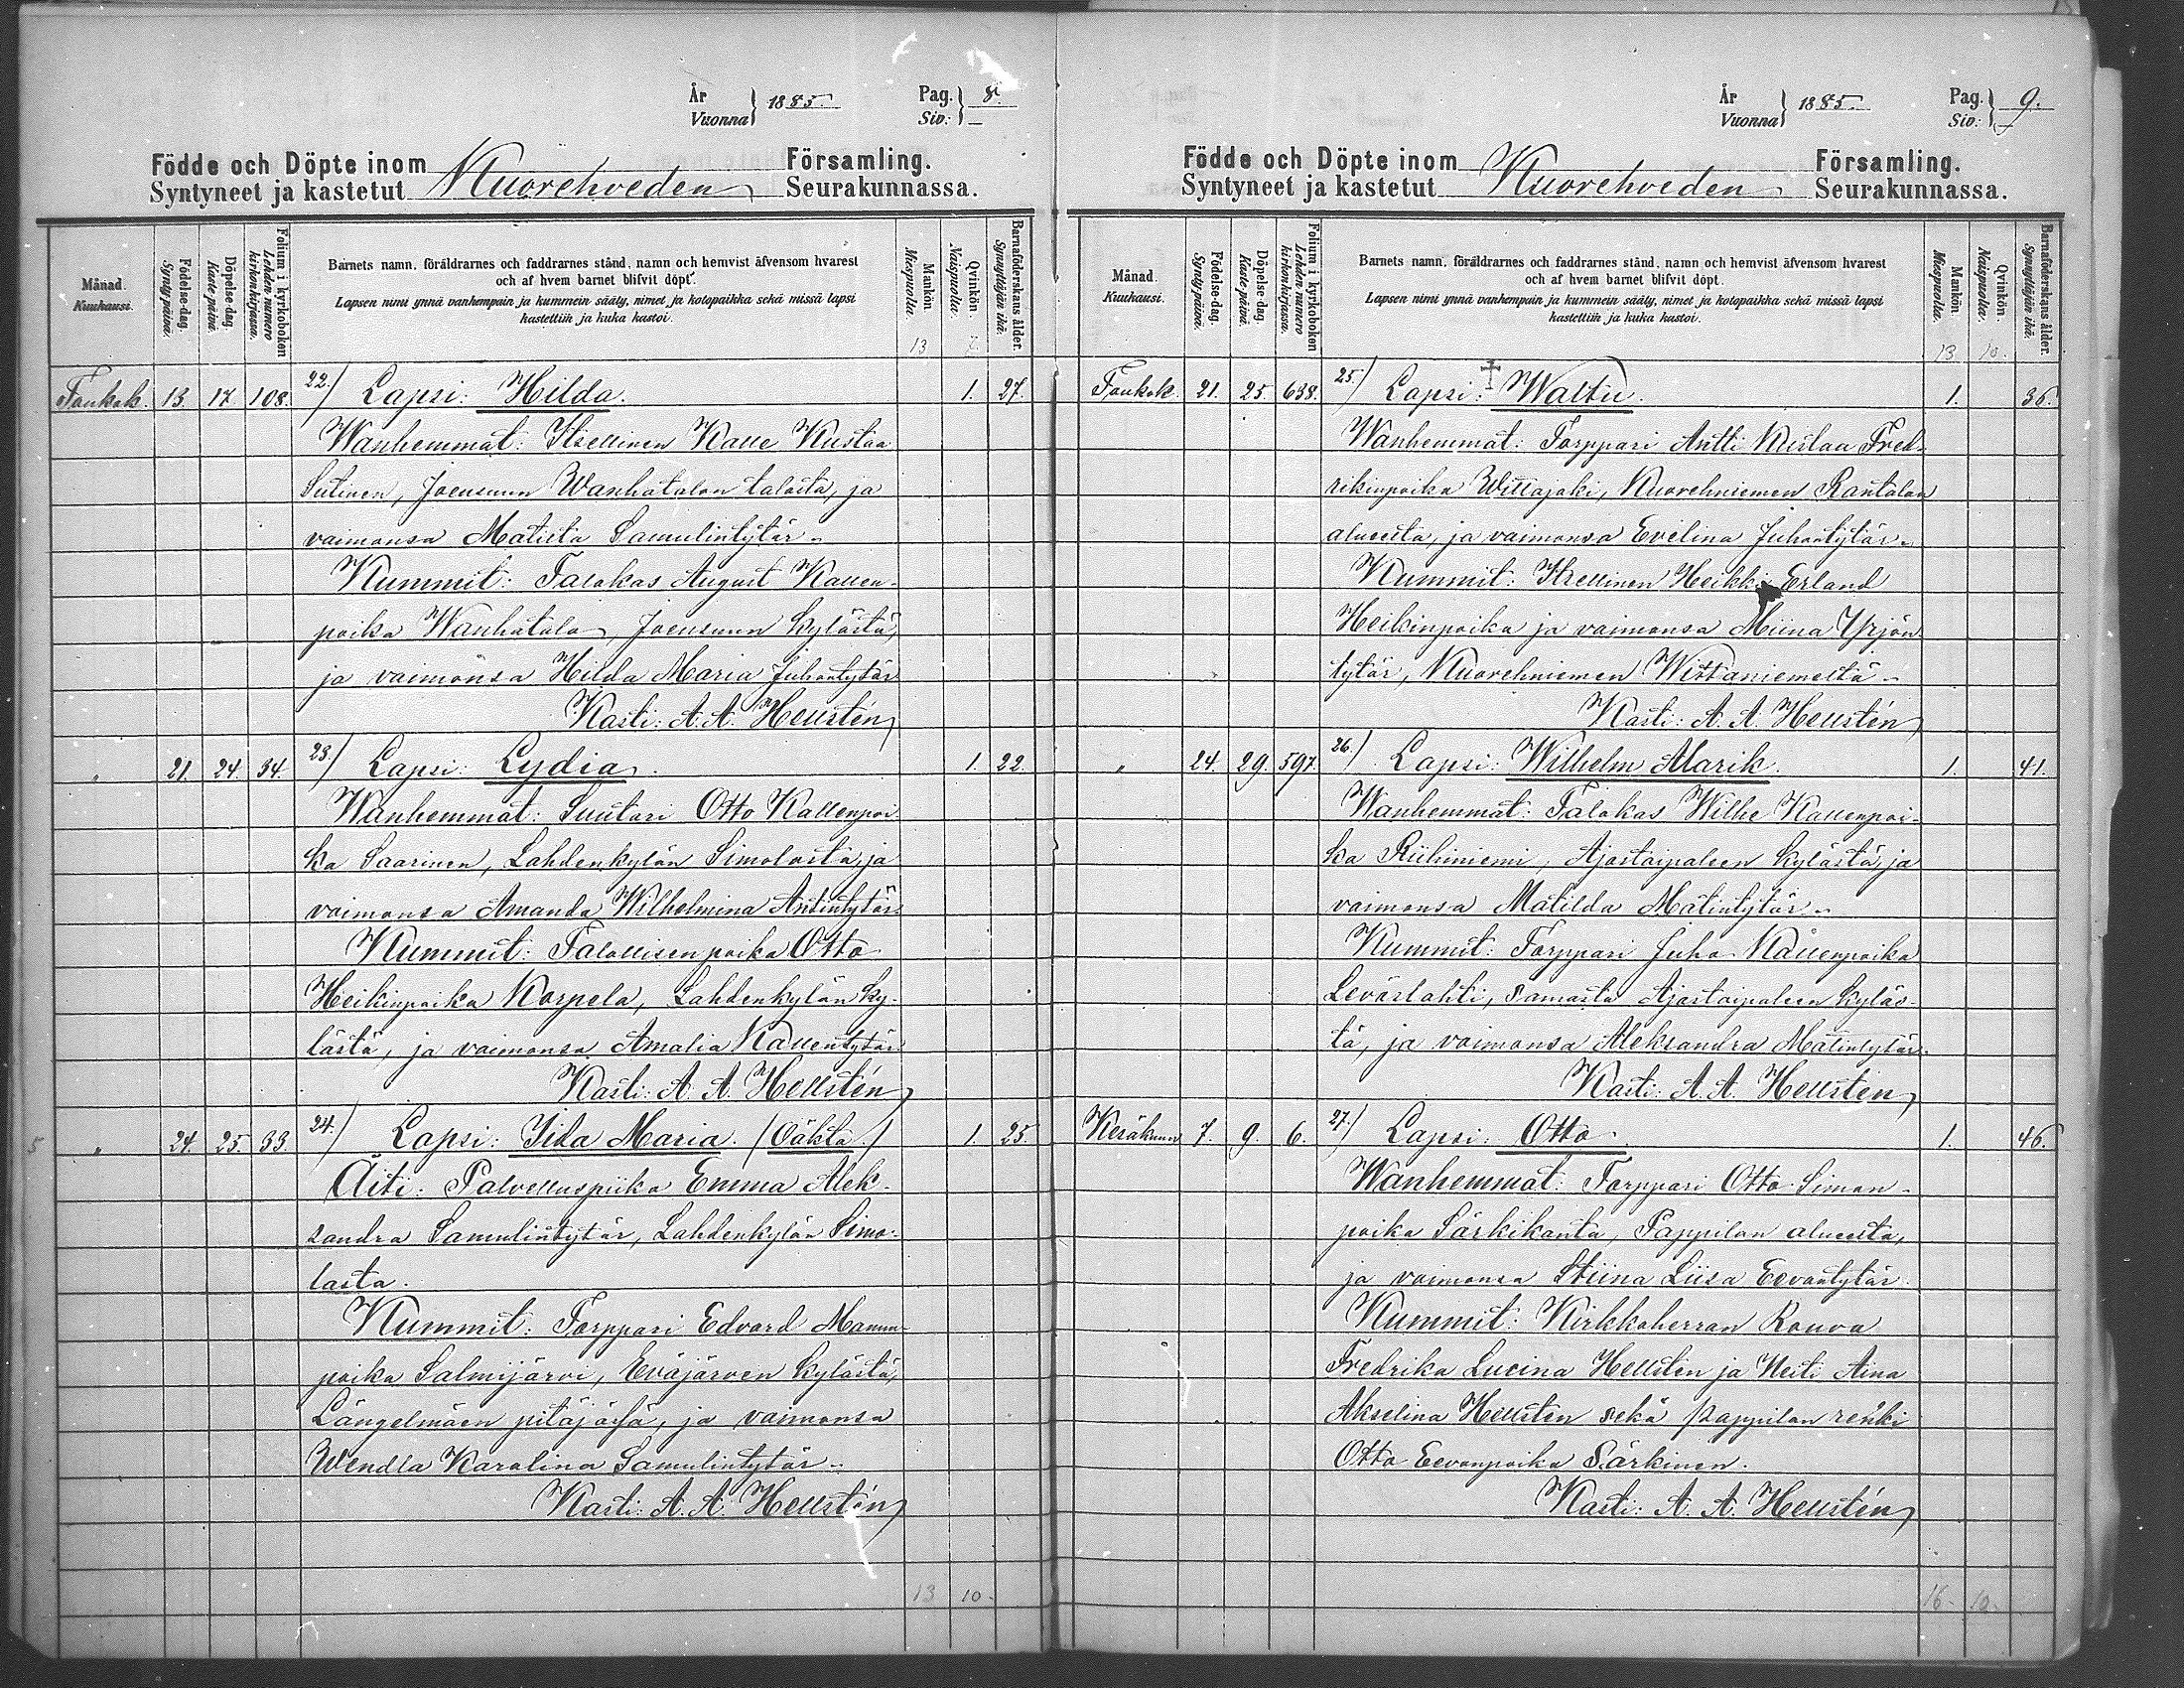 År Vuonna 1885. Pag. Siv: 8.
Födde och Döpte inom Kuorehveden Församling.
Syntyneet ja kastetut Seurakunnassa.
Månad. Kuukausi.
Födelse-dag. Synty-päivä.
Döpelse-dag. Kaste-päivä.
Folium i kyrkoboken Lehden numero kirkonkirjassa.
Barnets namn, föräldrarnes och faddrarnes stånd, namn och hemvist äfvensom hvarest
och af hvem barnet blifvit döpt.
Lapsen nimi ynnä vanhempain ja kummein sääty, nimet ja kotopaikka sekä missä lapsi
kastettiin ja kuka kastoi.
Mankön Miespuolia.
Qvinkön. Naispuolia.
Barnaföderskans ålder. Synnyttäjän ikä.
13 7.
Toukok. 13. 17. 108. 22.) Lapsi: Hilda. 1. 27.
Wanhemmat: Itsellinen Kalle Kustaa
Sutinen, Joensuun Wanhatalon talosta, ja
vaimonsa Matilta Samulintytär.
Kummit: Talokas August Kallen-
poika Wanhatalo, Joensuun kylästä,
ja vaimonsa Hilda Maria Juhontytär
Kasti: A. A. Hellstén
" 21. 24. 34. 23.) Lapsi: Lydia. 1. 22.
Wanhemmat: Suutari Otto Kallenpoi-
ka Saarinen, Lahdenkylän Simolasta, ja
vaimonsa Amanda Wilhelmina Antintytär.
Kummit: Talollisen poika Otto
Heikinpoika Korpela, Lahdenkylän ky-
lästä, ja vaimonsa Amalia Kallentytär.
Kasti: A. A. Hellstén
5 " 24. 25. 33. 24.) Lapsi: Iida Maria. (Oäkta.) 1. 25.
Äiti: Palvelluspiika Emma Alek-
sandra Samulintytär, Lahdenkylän Simo-
lasta.
Kummit: Torppari Edvard Manun-
poika Salmijärvi, Eväjärven kylästä,
Längelmäen pitäjässä, ja vaimonsa
Wendla Karolina Samulintytär.
Kasti: A. A. Hellstén
13 10.
År Vuonna 1885. Pag. Siv: 9.
Födde och Döpte inom Kuorehveden Församling.
Syntyneet ja kastetut Seurakunnassa.
Månad. Kuukausi.
Födelse-dag. Synty-päivä.
Döpelse-dag. Kaste-päivä.
Folium i kyrkoboken Lehden numero kirkonkirjassa.
Barnets namn, föräldrarnes och faddrarnes stånd, namn och hemvist äfvensom hvarest
och af hvem barnet blifvit döpt.
Lapsen nimi ynnä vanhempain ja kummein sääty, nimet ja kotopaikka sekä missä lapsi
kastettiin ja kuka kastoi.
Mankön Miespuolia.
Qvinkön. Naispuolia.
Barnaföderskans ålder. Synnyttäjän ikä.
13. 10.
Toukok. 21. 25. 638. 25.) Lapsi: † Waltu. 1. 36.
Wanhemmat: Torppari Antti Kustaa Fred-
rikinpoika Willajoki, Kuorehniemen Rantalan
alueelta, ja vaimonsa Evelina Juhontytär.
Kummit: Itsellinen Heikki Erland
Heikinpoika ja vaimonsa Miina Yrjön-
tytär, Kuorehniemen Wittaniemeltä.
Kasti: A. A. Hellstén
" 24. 29. 597. 26.) Lapsi: Wilhelm Alarik. 1. 41.
Wanhemmat: Talokas Wilhe Kallenpoi-
ka Riihiniemi, Ajostaipaleen kylästä, ja
vaimonsa Matilda Matintytär.
Kummit: Torppari Juho Kallenpoika
Leväslahti, samasta Ajostaipaleen kyläs-
tä, ja vaimonsa Aleksandra Matintytär.
Kasti: A. A. Hellstén
Kesäkuun 7. 9. 6. 27.) Lapsi: Otto. 1. 46.
Wanhemmat: Torppari Otto Simon-
poika Särkikanta, Pappilan alueelta,
ja vaimonsa Stiina Liisa Eevantytär.
Kummit: Kirkkoherran Rouva
Fredrika Lucina Hellstén ja Neiti Aina
Akselina Hellstén sekä pappilan renki
Otto Eevanpoika Särkinen.
Kasti: A. A. Hellstén
16. 10.